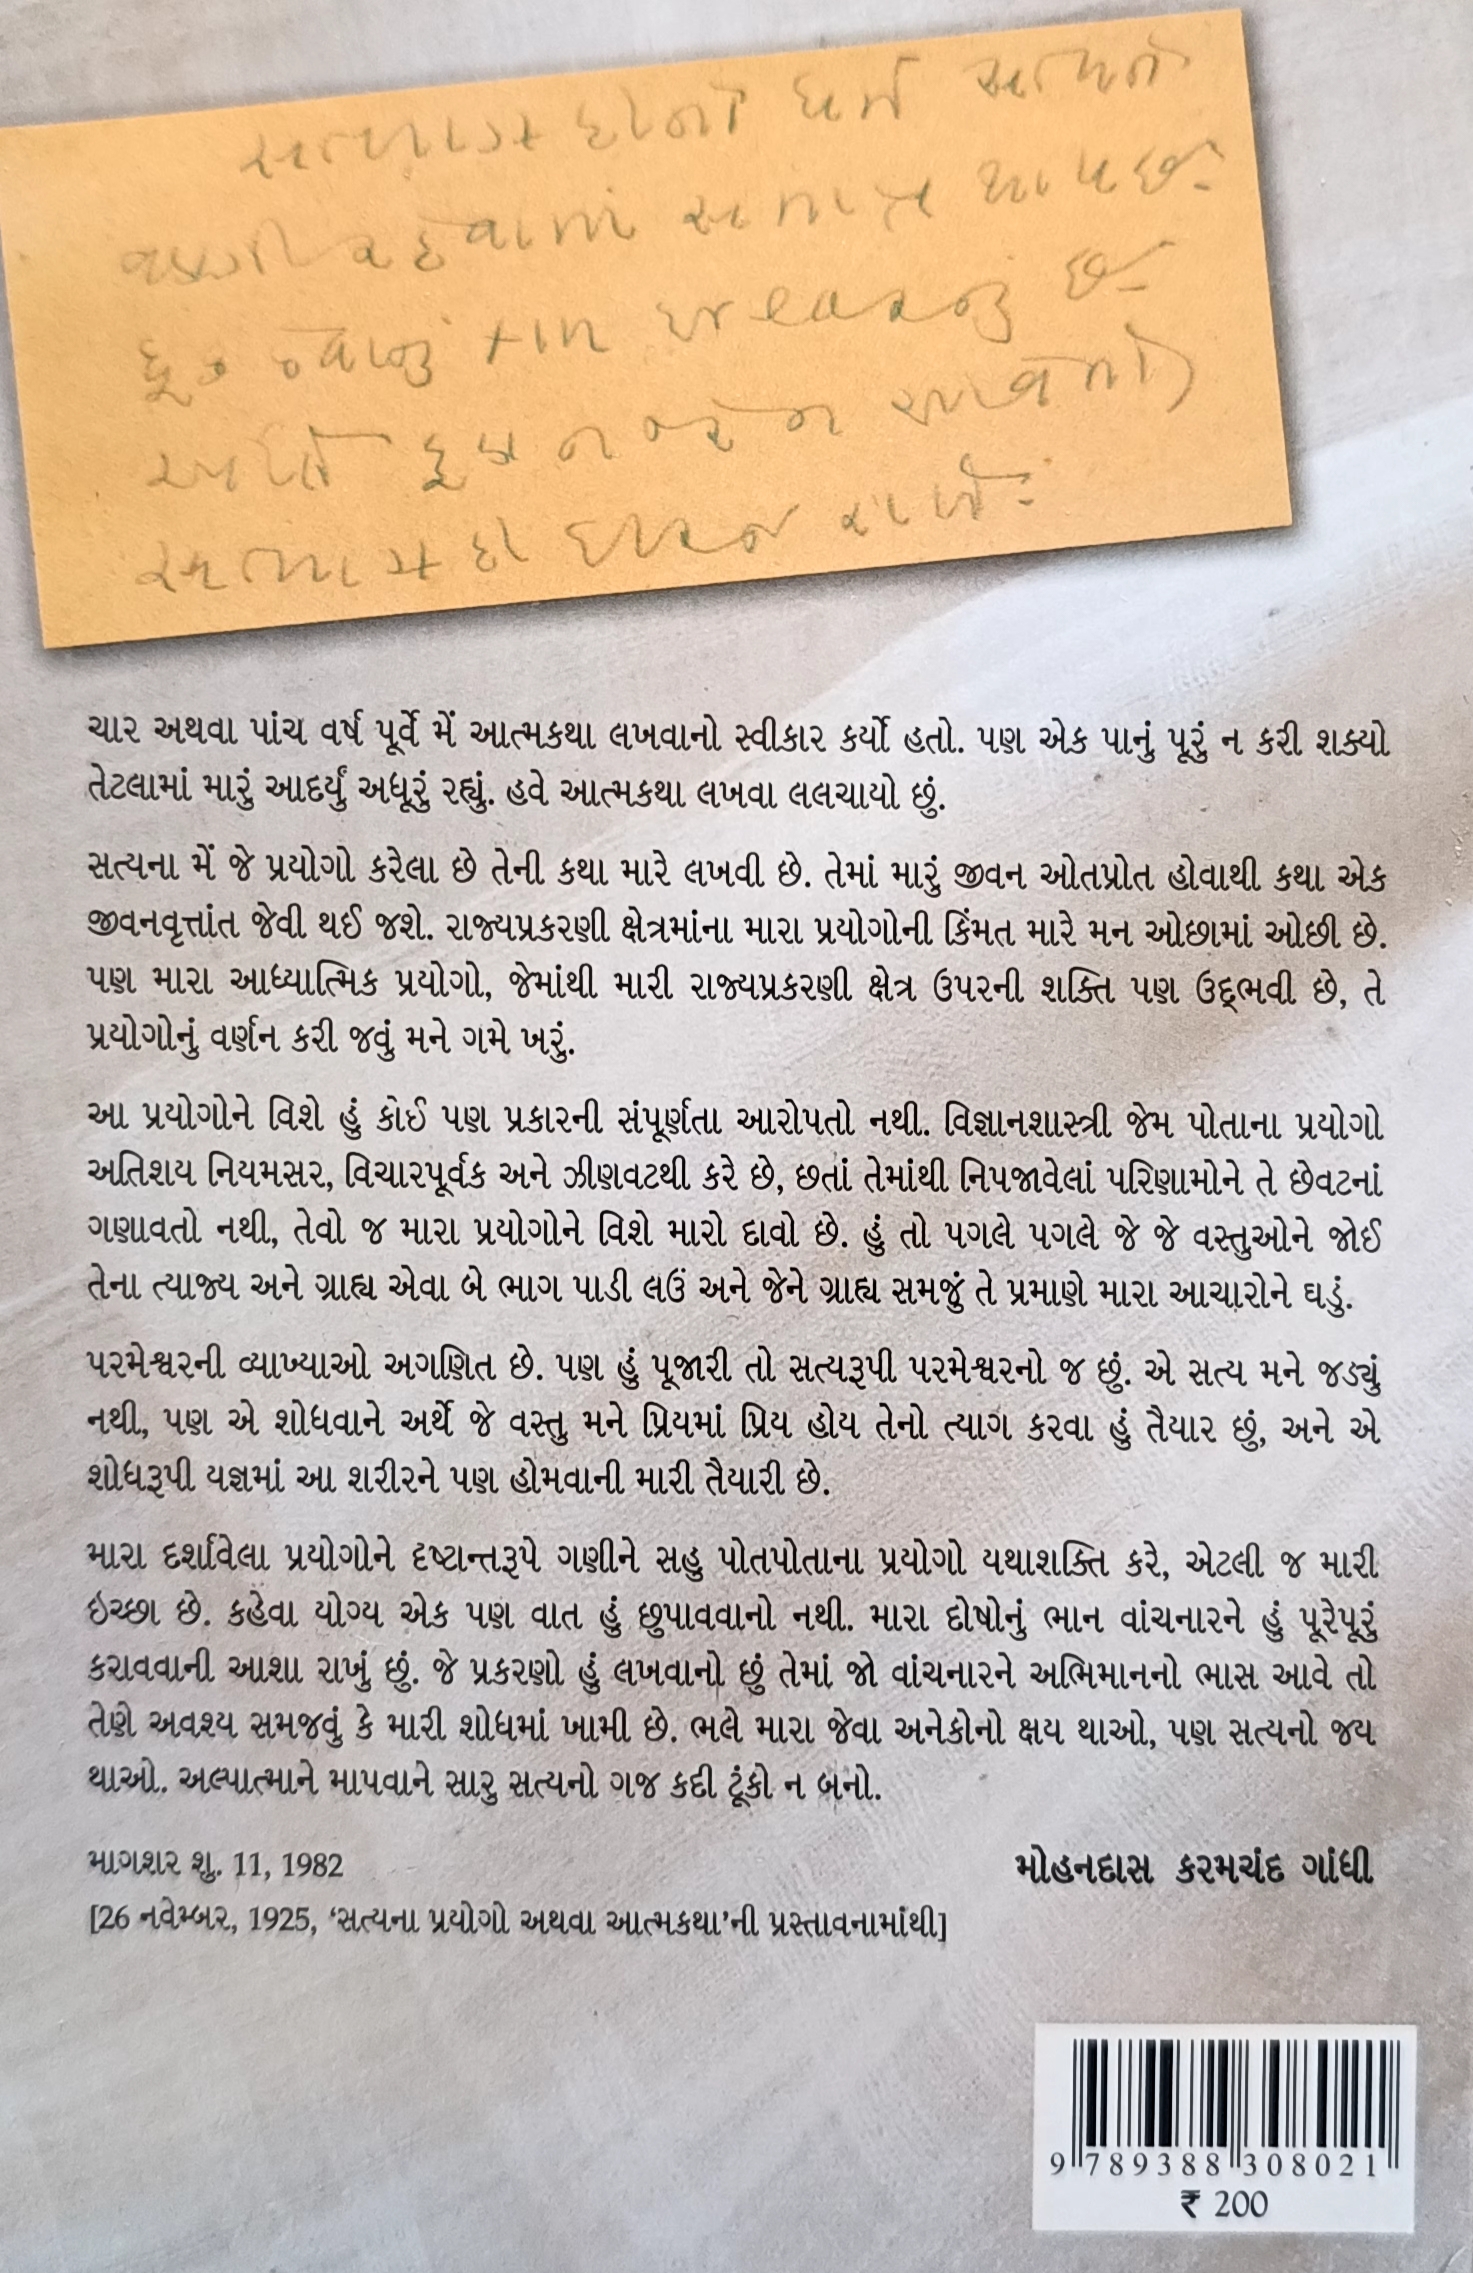 ચાર અથવા પાંચ વર્ષ પૂર્વે મેં આત્મકથા લખવાનો સ્વીકાર કર્યો હતો. પણ એક પાનું પૂરું ન કરી શક્યો
તેટલામાં મારું આદર્યું અધૂરું રહ્યું. હવે આત્મકથા લખવા લલચાયો છું.
સત્યના મેં જે પ્રયોગો કરેલા છે તેની કથા મારે લખવી છે. તેમાં મારું જીવન ઓતપ્રોત હોવાથી કથા એક
જીવનવૃત્તાંત જેવી થઈ જશે. રાજ્યપ્રકરણી ક્ષેત્રમાંના મારા પ્રયોગોની કિંમત મારે મન ઓછામાં ઓછી છે.
પણ મારા આધ્યાત્મિક પ્રયોગો, જેમાંથી મારી રાજ્યપ્રકરણી ક્ષેત્ર ઉપરની શક્તિ પણ ઉદ્‌ભવી છે, તે
પ્રયોગોનું વર્ણન કરી જવું મને ગમે ખરું.
આ પ્રયોગોને વિશે હું કોઈ પણ પ્રકારની સંપૂર્ણતા આરોપતો નથી. વિજ્ઞાનશાસ્ત્રી જેમ પોતાના પ્રયોગો
અતિશય નિયમસર, વિચારપૂર્વક અને ઝીણવટથી કરે છે, છતાં તેમાંથી નિપજાવેલાં પરિણામોને તે છેવટનાં
ગણાવતો નથી, તેવો જ મારા પ્રયોગોને વિશે મારો દાવો છે. હું તો પગલે પગલે જે જે વસ્તુઓને જોઈ
તેના ત્યાજ્ય અને ગ્રાહ્ય એવા બે ભાગ પાડી લઉં અને જેને ગ્રાહ્ય સમજું તે પ્રમાણે મારા આચારોને ઘડું.
પરમેશ્વરની વ્યાખ્યાઓ અગણિત છે. પણ હું પૂજારી તો સત્યરૂપી પરમેશ્વરનો જ છું. એ સત્ય મને જડ્યું
નથી, પણ એ શોધવાને અર્થે જે વસ્તુ મને પ્રિયમાં પ્રિય હોય તેનો ત્યાગ કરવા હું તૈયાર છું, અને એ
શોધરૂપી યજ્ઞમાં આ શરીરને પણ હોમવાની મારી તૈયારી છે.
મારા દર્શાવેલા પ્રયોગોને દૃષ્ટાન્તરૂપે ગણીને સહુ પોતપોતાના પ્રયોગો યથાશક્તિ કરે, એટલી જ મારી
ઇચ્છા છે. કહેવા યોગ્ય એક પણ વાત હું છુપાવવાનો નથી. મારા દોષોનું ભાન વાંચનારને હું પૂરેપૂરું
કરાવવાની આશા રાખું છું. જે પ્રકરણો હું લખવાનો છું તેમાં જો વાંચનારને અભિમાનનો ભાસ આવે તો
તેણે અવશ્ય સમજવું કે મારી શોધમાં ખામી છે. ભલે મારા જેવા અનેકોનો ક્ષય થાઓ, પણ સત્યનો જય
થાઓ. અલ્પાત્માને માપવાને સારુ સત્યનો ગજ કદી ટૂંકો ન બનો.
માગશર શુ. 11, 1982
મોહનદાસ કરમચંદ ગાંધી
[26 નવેમ્બર, 1925, ‘સત્યના પ્રયોગો અથવા આત્મકથા’ની પ્રસ્તાવનામાંથી]
9 789388 308021
₹ 200